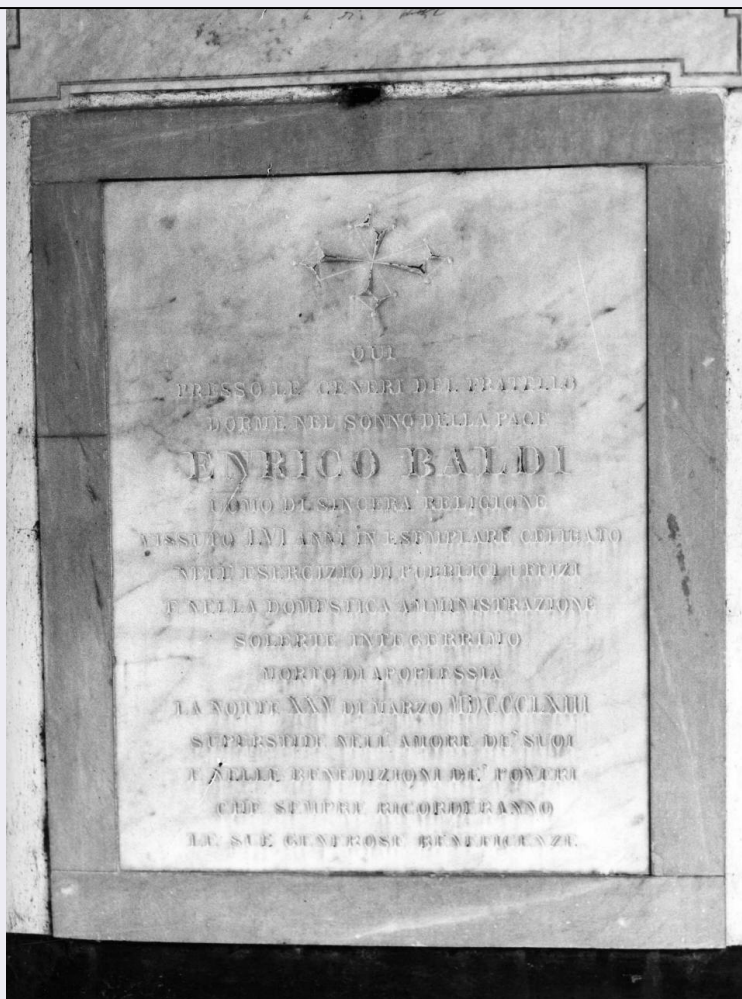 QUI
PRESSO LE CENERI DEL FRATELLO
DORME NEL SONNO DELLA PACE
ENRICO BALDI
UOMO DI SINCERA RELIGIONE
VISSUTO LVI ANNI IN ESEMPLARE CELIBATO
NELL' ESERCIZIO DI PUBBLICI UFFIZI
E NELLA DOMESTICA AMMINISTRAZIONE
SOLERTE INTEGERRIMO
MORTO DI APOPLESSIA
LA NOTTE XXV DI MARZO MDCCCLXIII
SUPERSTITE NELL' AMORE DE' SUOI
E NELLE BENEDIZIONI DE' POVERI
CHE SEMPRE RICORDERANNO
LE SUE GENEROSE BENEFICENZE